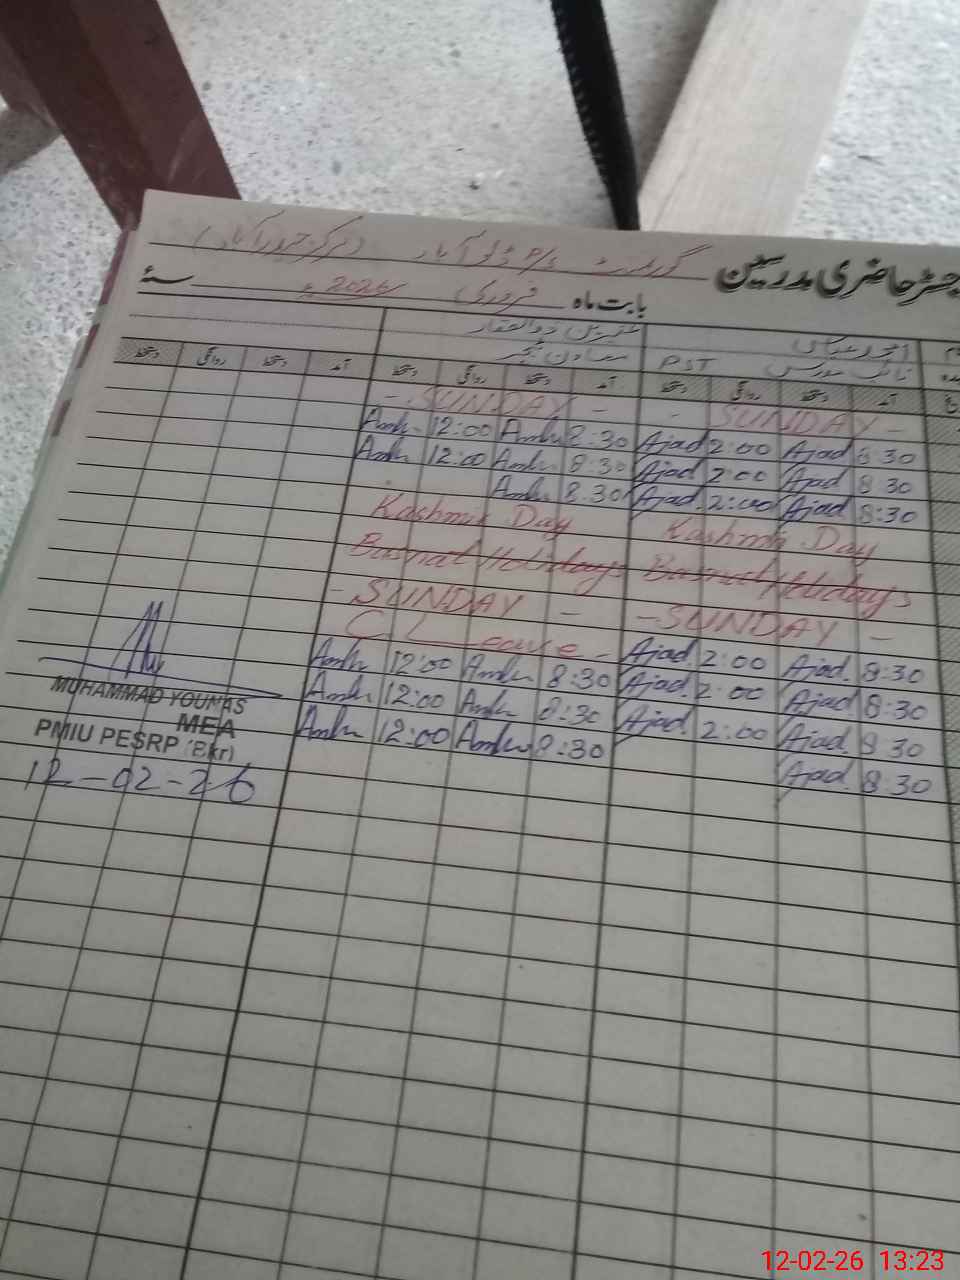 رجسٹر حاضری مدرسین گورنمنٹ P/S
بابت ماہ فروری 2026ء سنۂ
امجد عباس
نائب مدرس PST
عنبرین ذوالفقار
معاون ٹیچر
آمد دستخط روانگی دستخط آمد دستخط روانگی دستخط آمد دستخط روانگی دستخط
- SUNDAY - - SUNDAY -
12:00 8:30 Ajad 2:00 Ajad 8:30
12:00 8:30 Ajad 2:00 Ajad 8:30
8:30 Ajad 2:00 Ajad 8:30
Kashmir Day Kashmir Day
Basnat Holidays Basnat Holidays
- SUNDAY - - SUNDAY -
C Leave - Ajad 2:00 Ajad 8:30
12:00 8:30 Ajad 2:00 Ajad 8:30
12:00 8:30 Ajad 2:00 Ajad 8:30
12:00 8:30 Ajad 8:30
MUHAMMAD YOUNAS
MEA
PMIU PESRP (Bkr)
12-02-26
12-02-26 13:23